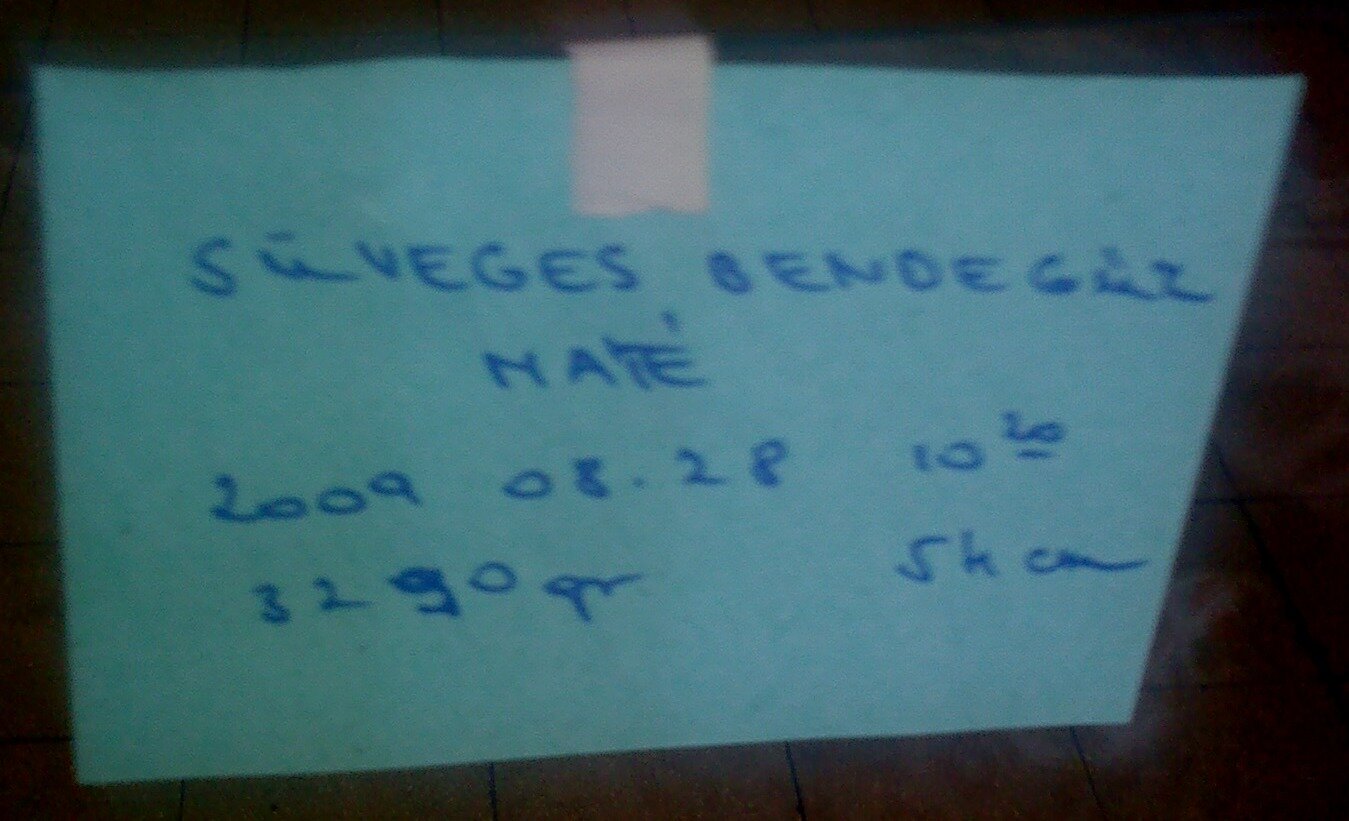 SÜVEGES BENDEGÚZ
MÁTÉ
2009 08.28 10 20
3290 gr 54 cm